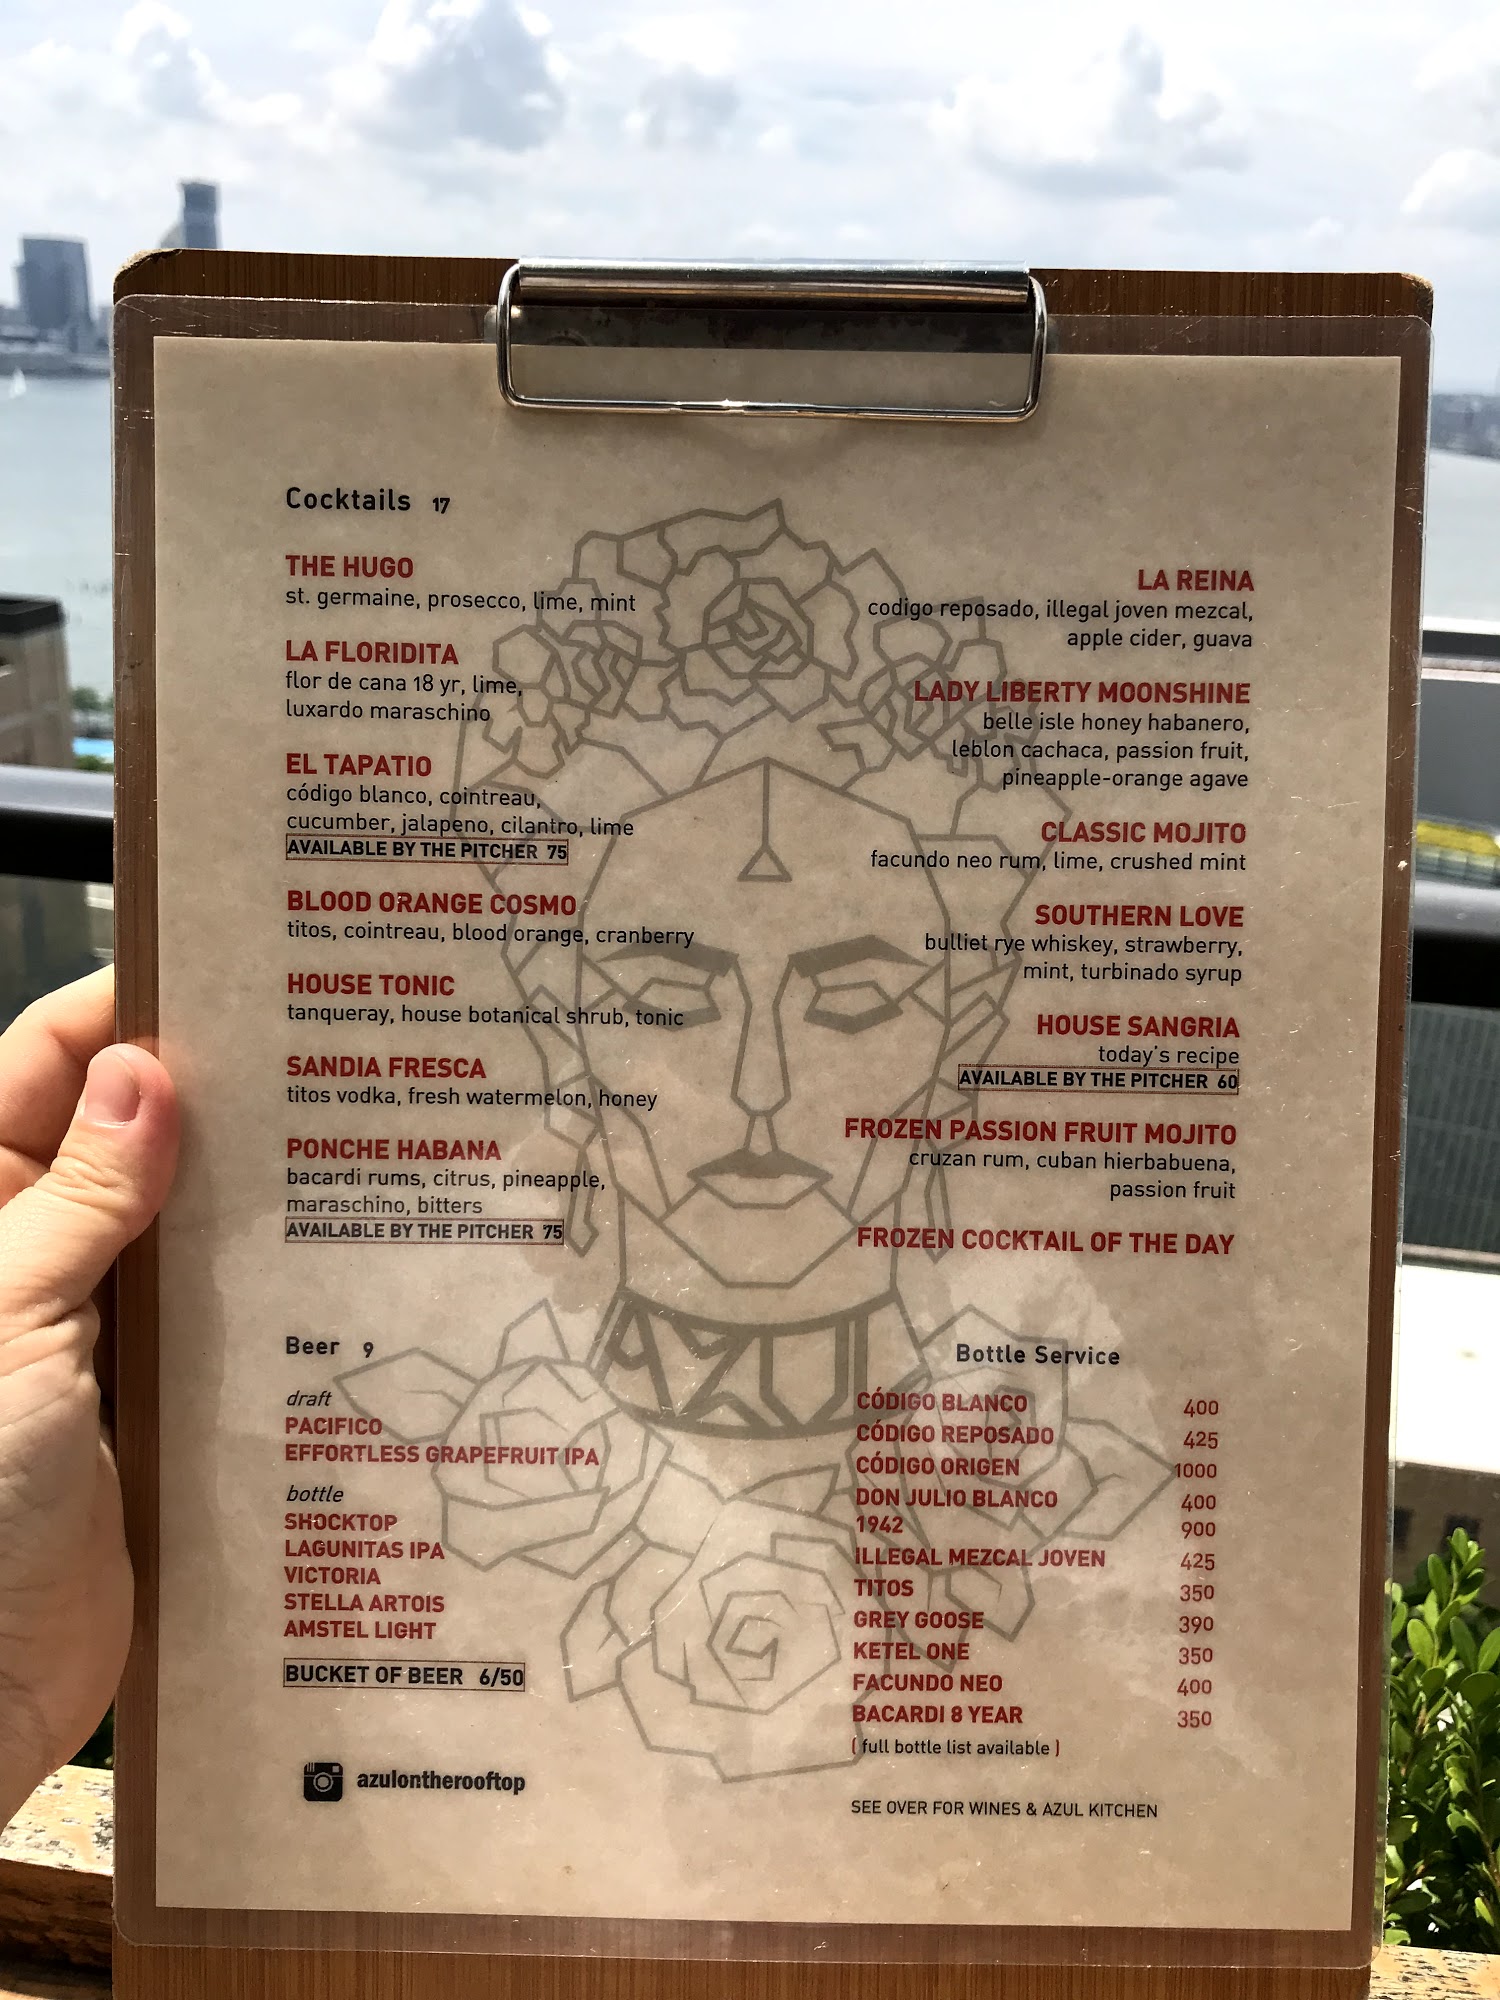 Cocktails 17
THE HUGO
st. germaine, prosecco, lime, mint
LA FLORIDITA
flor de cana 18 yr, lime,
luxardo maraschino
EL TAPATIO
código blanco, cointreau,
cucumber, jalapeno, cilantro, lime
AVAILABLE BY THE PITCHER 75
BLOOD ORANGE COSMO
titos, cointreau, blood orange, cranberry
HOUSE TONIC
tanqueray, house botanical shrub, tonic
SANDIA FRESCA
titos vodka, fresh watermelon, honey
PONCHE HABANA
bacardi rums, citrus, pineapple,
maraschino, bitters
AVAILABLE BY THE PITCHER 75
LA REINA
codigo reposado, illegal joven mezcal,
apple cider, guava
LADY LIBERTY MOONSHINE
belle isle honey habanero,
leblon cachaca, passion fruit,
pineapple-orange agave
CLASSIC MOJITO
facundo neo rum, lime, crushed mint
SOUTHERN LOVE
bulliet rye whiskey, strawberry,
mint, turbinado syrup
HOUSE SANGRIA
today's recipe
AVAILABLE BY THE PITCHER 60
FROZEN PASSION FRUIT MOJITO
cruzan rum, cuban hierbabuena,
passion fruit
FROZEN COCKTAIL OF THE DAY
AZUL
Beer 9
draft
PACIFICO
EFFORTLESS GRAPEFRUIT IPA
bottle
SHOCKTOP
LAGUNITAS IPA
VICTORIA
STELLA ARTOIS
AMSTEL LIGHT
BUCKET OF BEER 6/50
azulontherooftop
Bottle Service
CÓDIGO BLANCO 400
CÓDIGO REPOSADO 425
CÓDIGO ORIGEN 1000
DON JULIO BLANCO 400
1942 900
ILLEGAL MEZCAL JOVEN 425
TITOS 350
GREY GOOSE 390
KETEL ONE 350
FACUNDO NEO 400
BACARDI 8 YEAR 350
( full bottle list available )
SEE OVER FOR WINES & AZUL KITCHEN